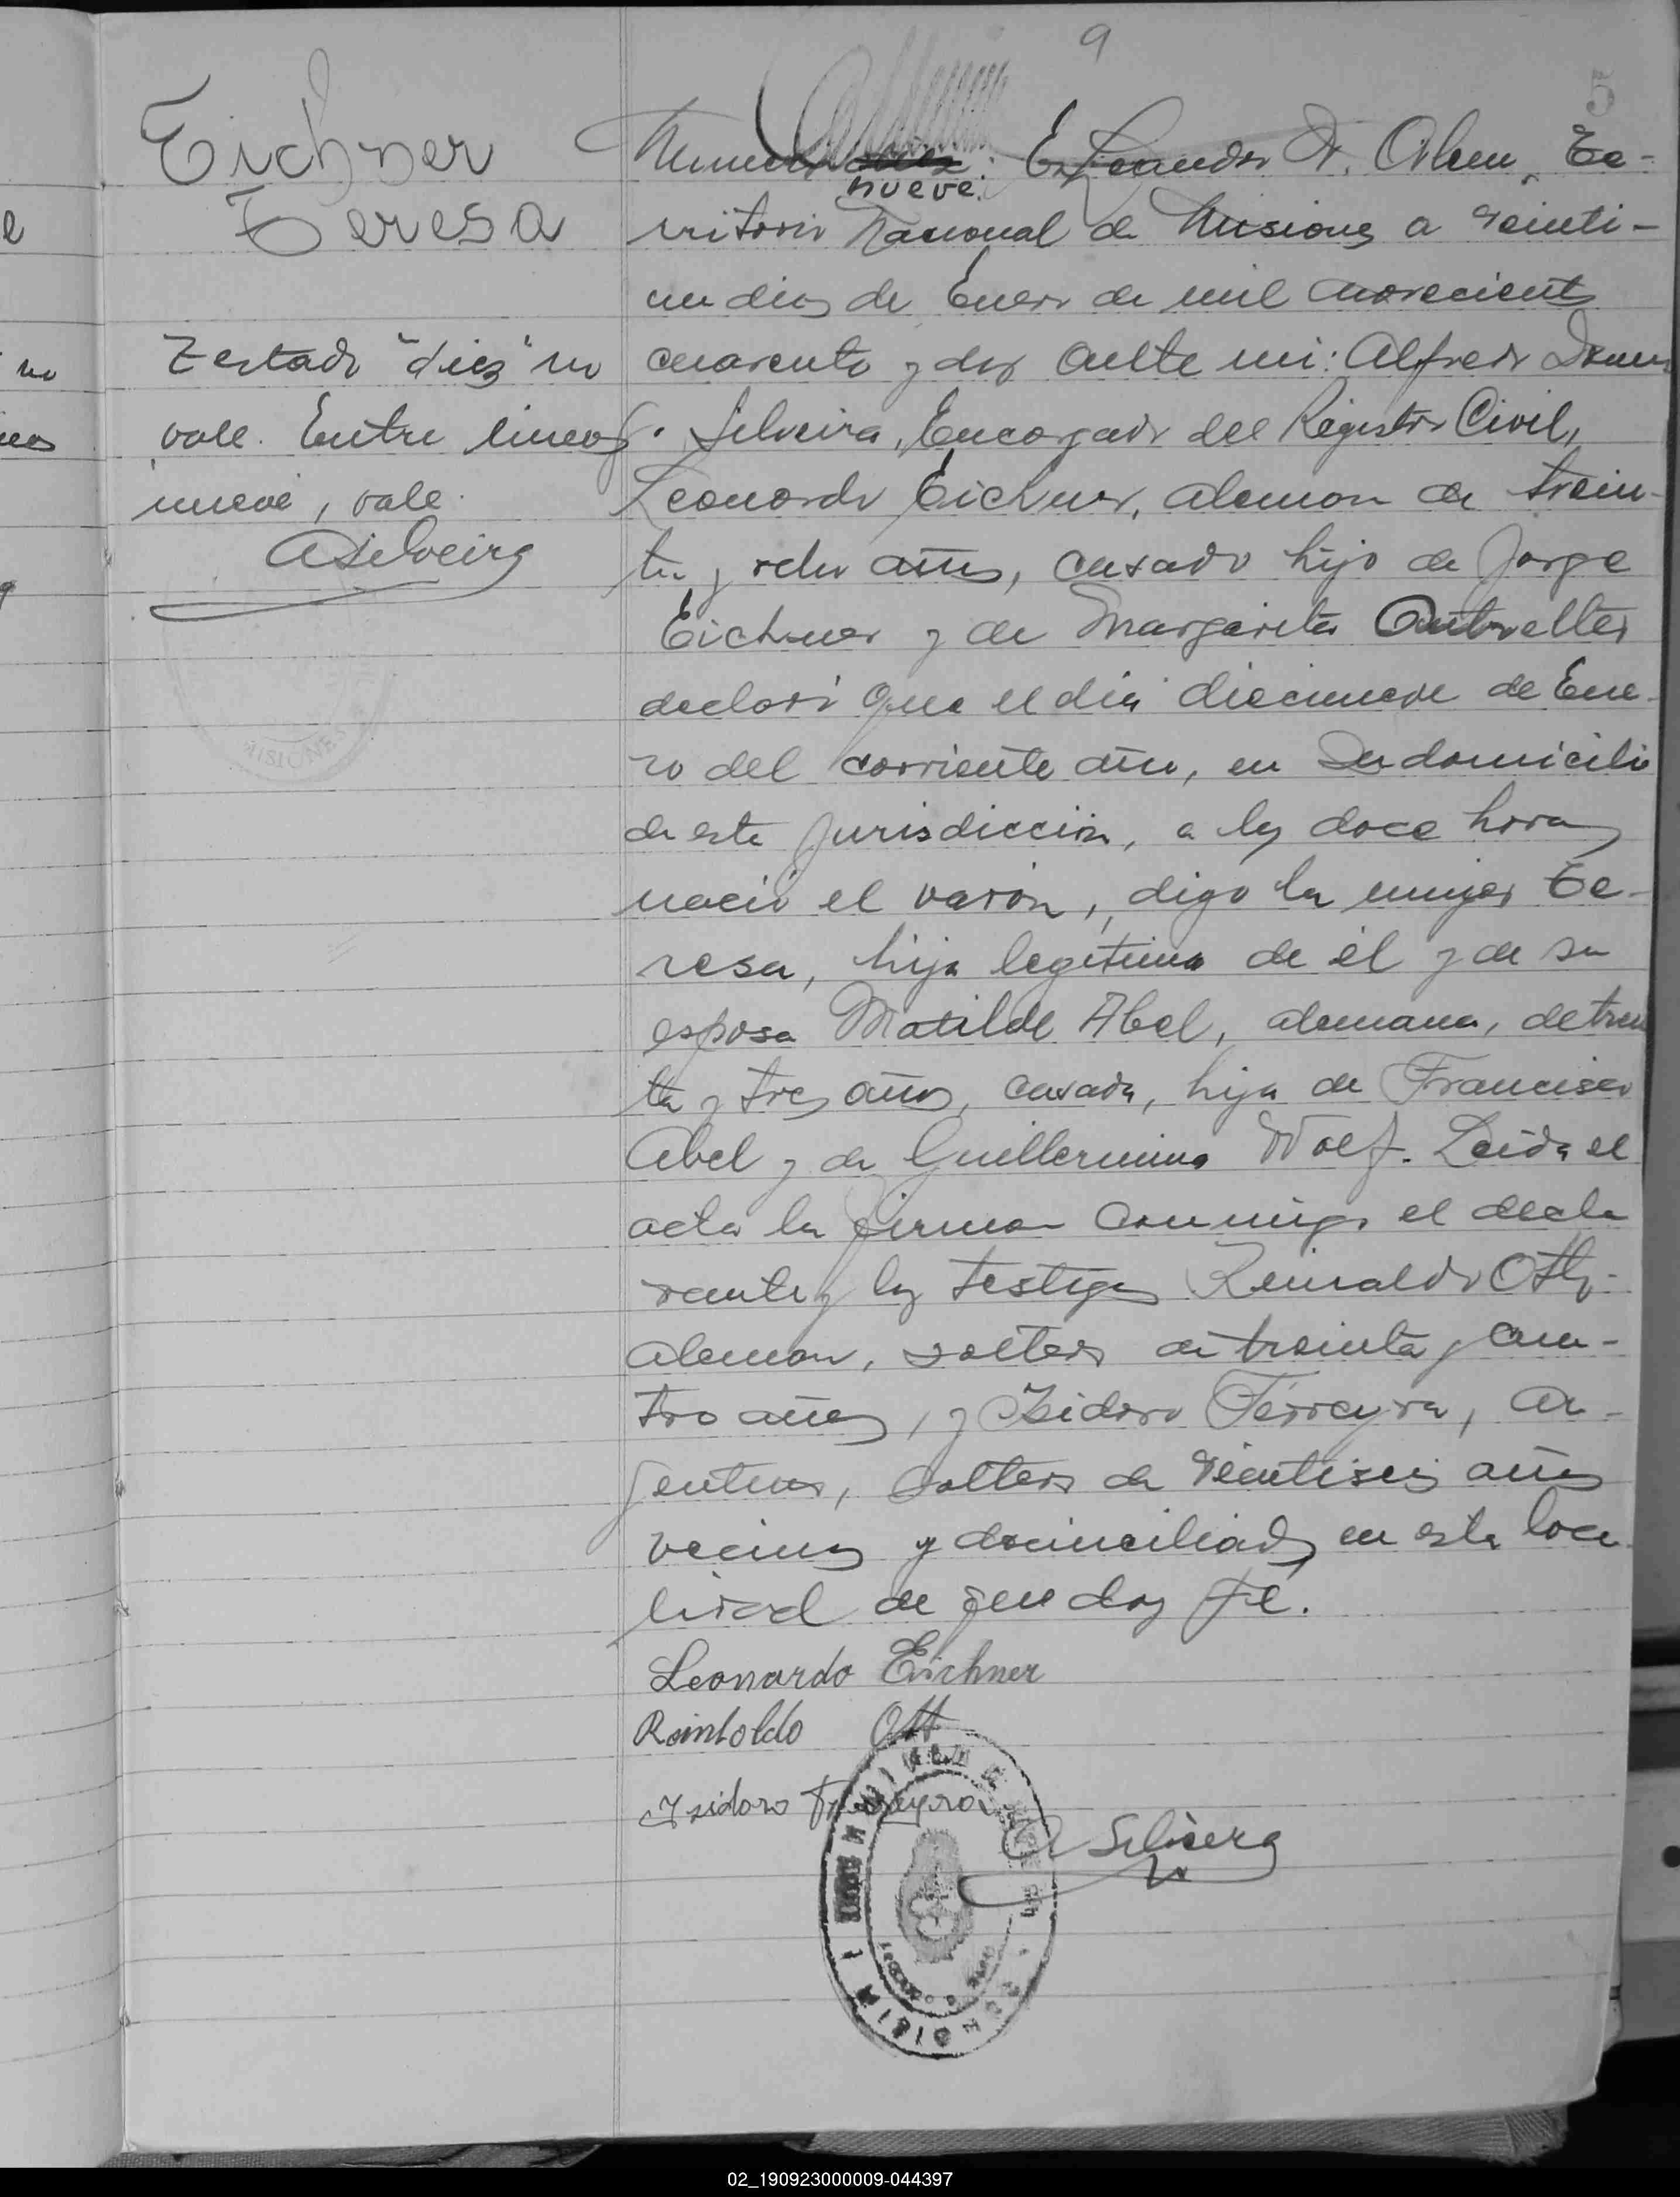 9
5
Eichner
Teresa
Testado "diez" no
vale. Entre lineas
nueve, vale.
ASilveira
MISIONES
Numero diez. En Leandro N. Alem, Te-
nueve.
rritorio Nacional de Misiones a veinti-
un dias de Enero de mil novecientos
cuarenta y dos ante mi: Alfredo
Silveira, Encargado del Registro Civil,
Leonardo Eichner, aleman de trein-
ta y ocho años, casado hijo de Jorge
Eichner y de Margarita
declaró que el dia diecinueve de Ene-
ro del corriente año, en su domicilio
de esta jurisdiccion, a las doce horas
nació el varón, digo la mujer Te-
resa, hija legitima de él y de su
esposa Matilde Abel, alemana, de trein
ta y tres años, casada, hija de Francisco
Abel y de Guillermina Wolf. Leida el
acta la firman conmigo el decla
rante y los testigos Reinaldo Ott,
aleman, soltero de treinta y cua-
tro años, y Isidoro Ferreyra, ar-
gentino, soltero de veintiseis años
vecinos y domiciliados en esta loca
lidad de que doy fé.
Leonardo Eichner
Reinholdo Ott
Isidoro Ferreyra
A Silveira
02_190923000009-044397